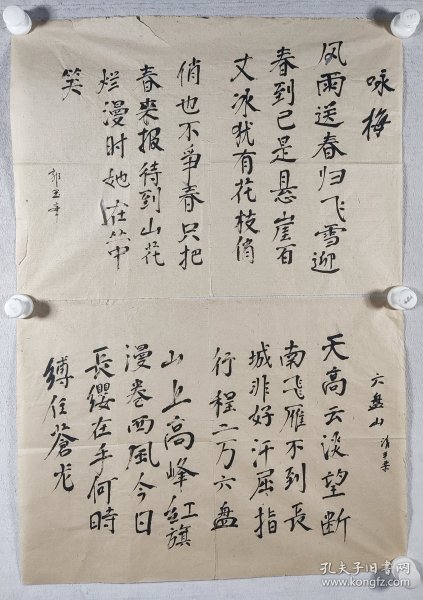 咏梅
风雨送春归飞雪迎
春到已是悬崖百
丈冰犹有花枝俏
俏也不爭春只把
春来报待到山花
烂漫时她在丛中
笑
六盘山 清平乐
天高云淡望断
南飞雁不到長
城非好汗屈指
行程二万六盘
山上高峰红旗
漫卷西风今日
長缨在手何時
缚住蒼龙
孔夫子旧书网
www.kongfz.com